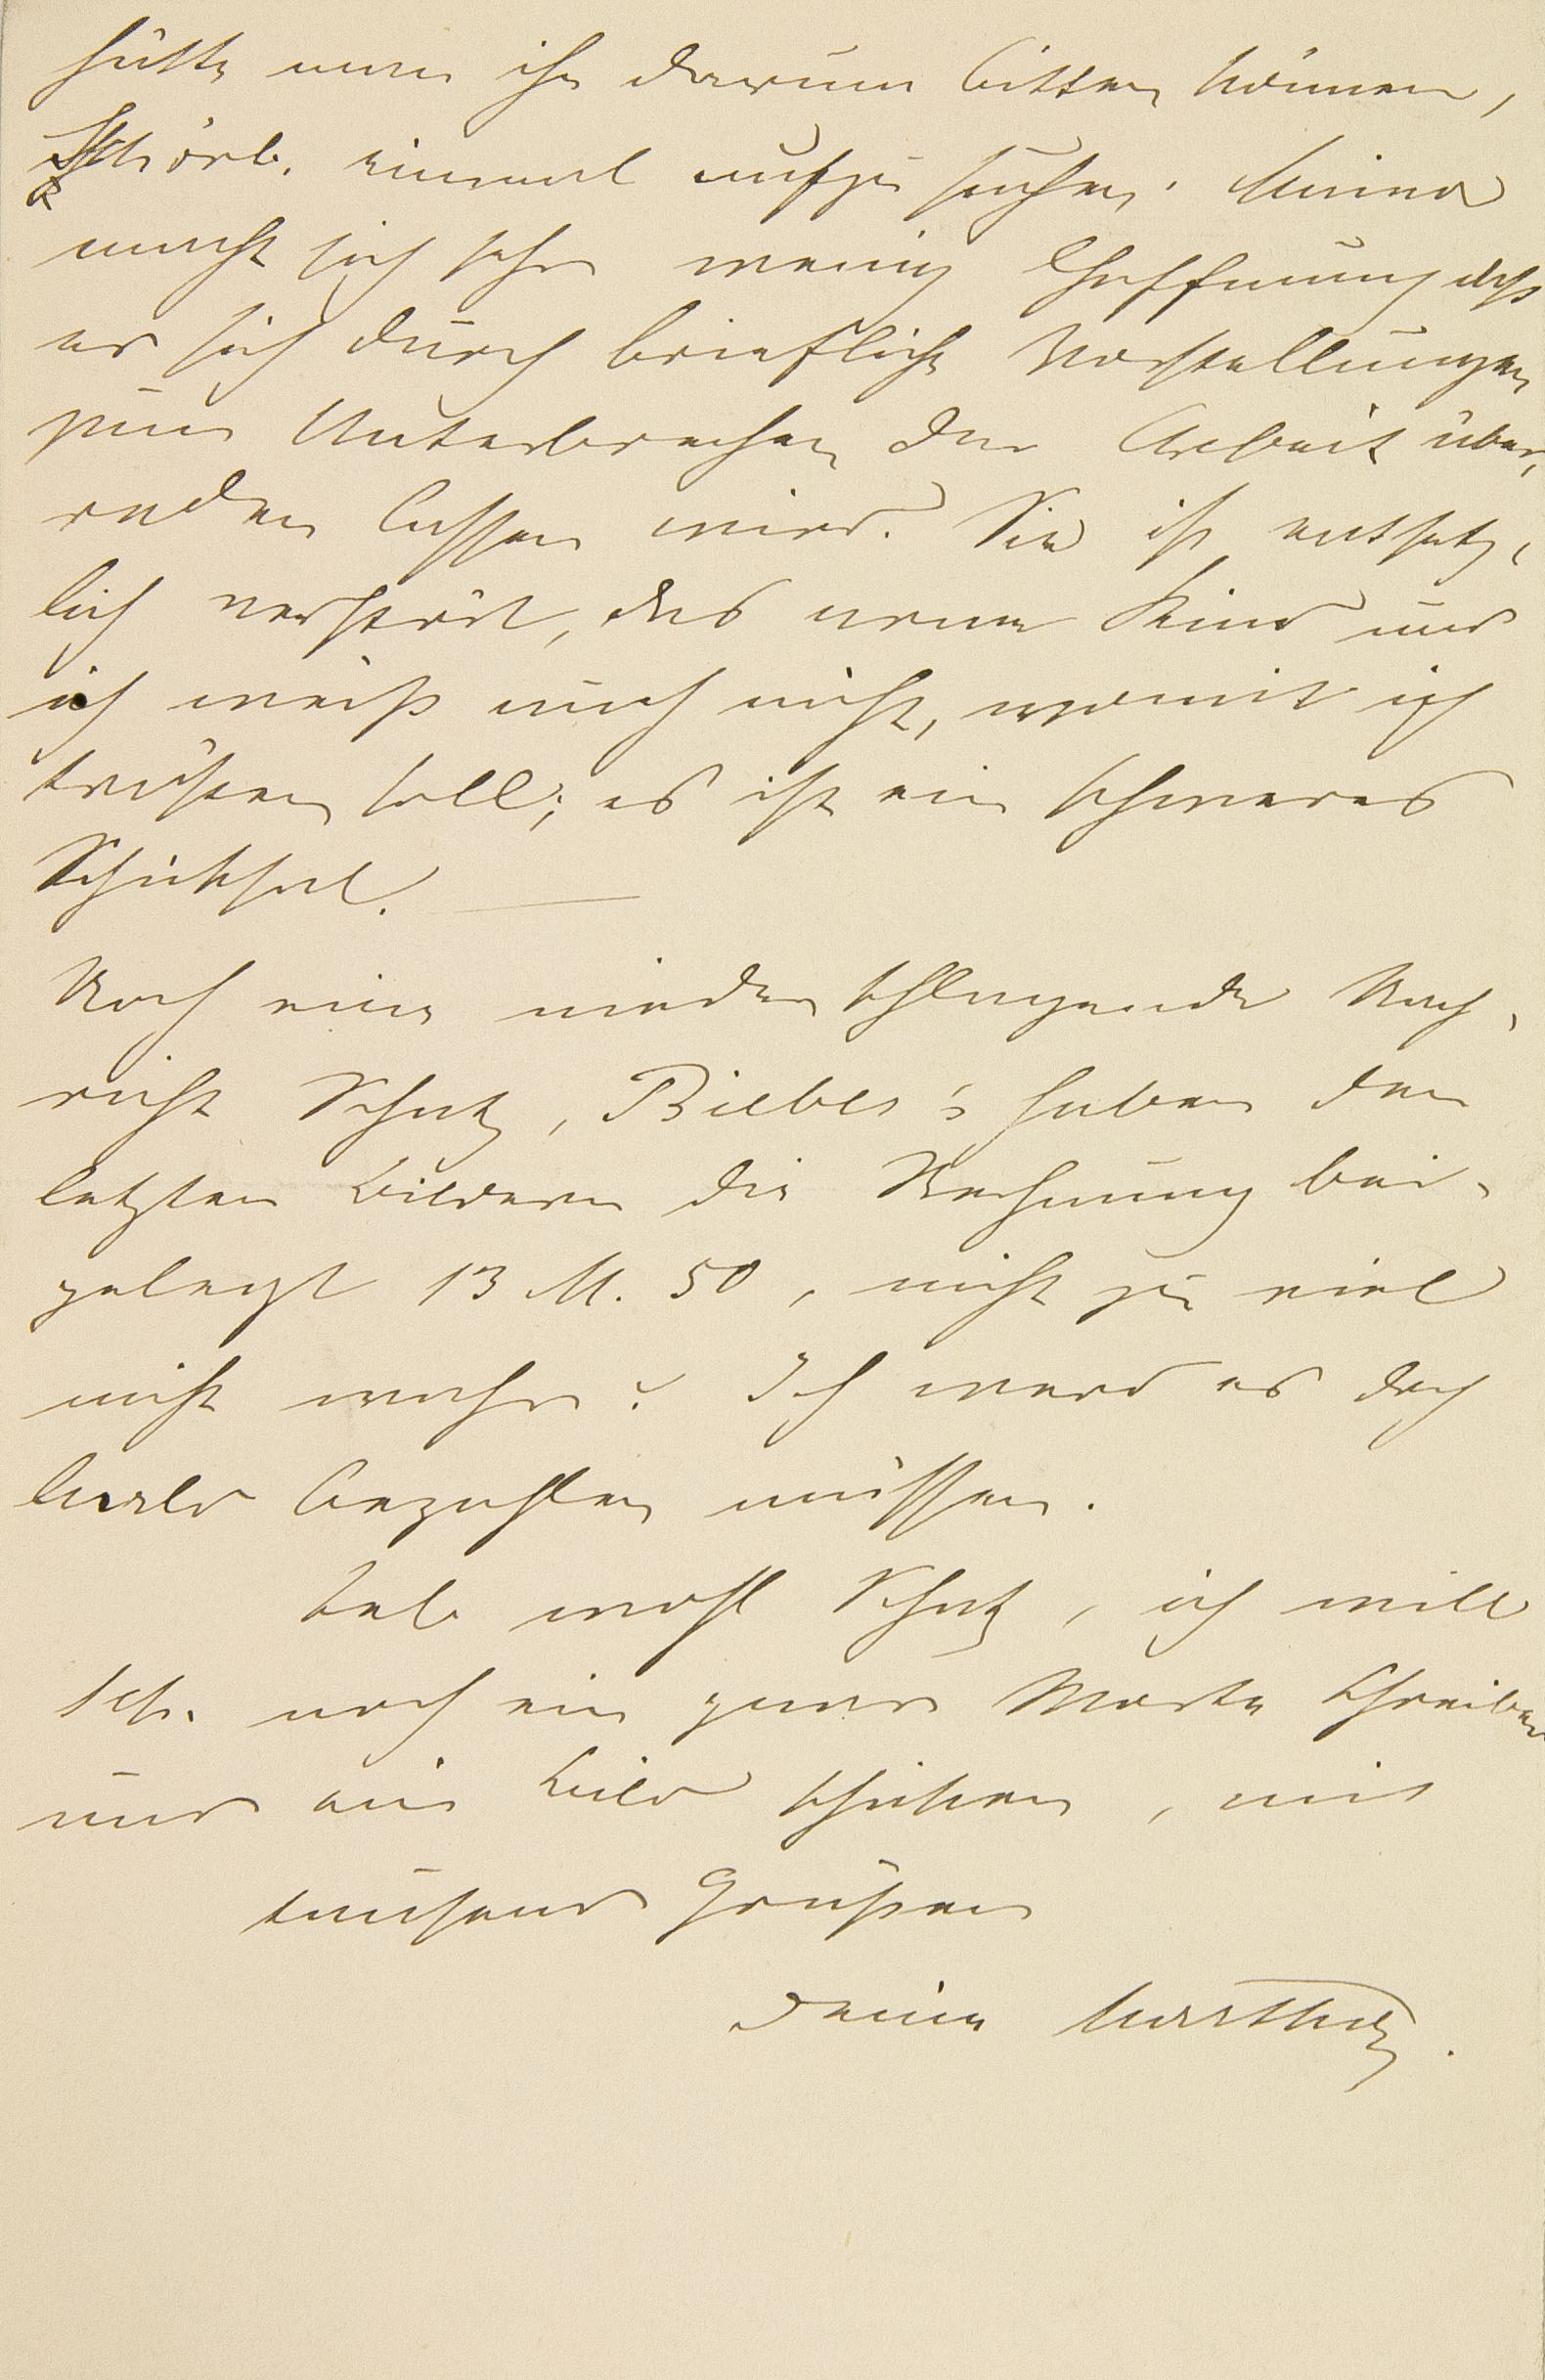 hätte man ihn darum bitten können,
Schönb. einmal aufzusuchen. Minna
macht sich sehr wenig Hoffnung daß
er sich durch briefliche Vorstellungen
zum Unterbrechen der Arbeit über,
reden lassen wird. Sie ist entsetz,
lich verstört, das arme Kind und
ich weiß auch nicht, womit ich
trösten soll; es ist ein schweres
Schicksal. —
Noch eine niederschlagende Nach,
richt Schatz, Bieber's haben den
letzten Bildern die Rechnung bei,
gelegt 13 M. 50, nicht zu viel
nicht wahr? Ich werd es doch
bald bezahlen müssen.
Leb wohl Schatz, ich will
Sch. noch ein paar Worte schreiben
und ein Bild schicken, mit
tausend Grüßen
Deine Martha.